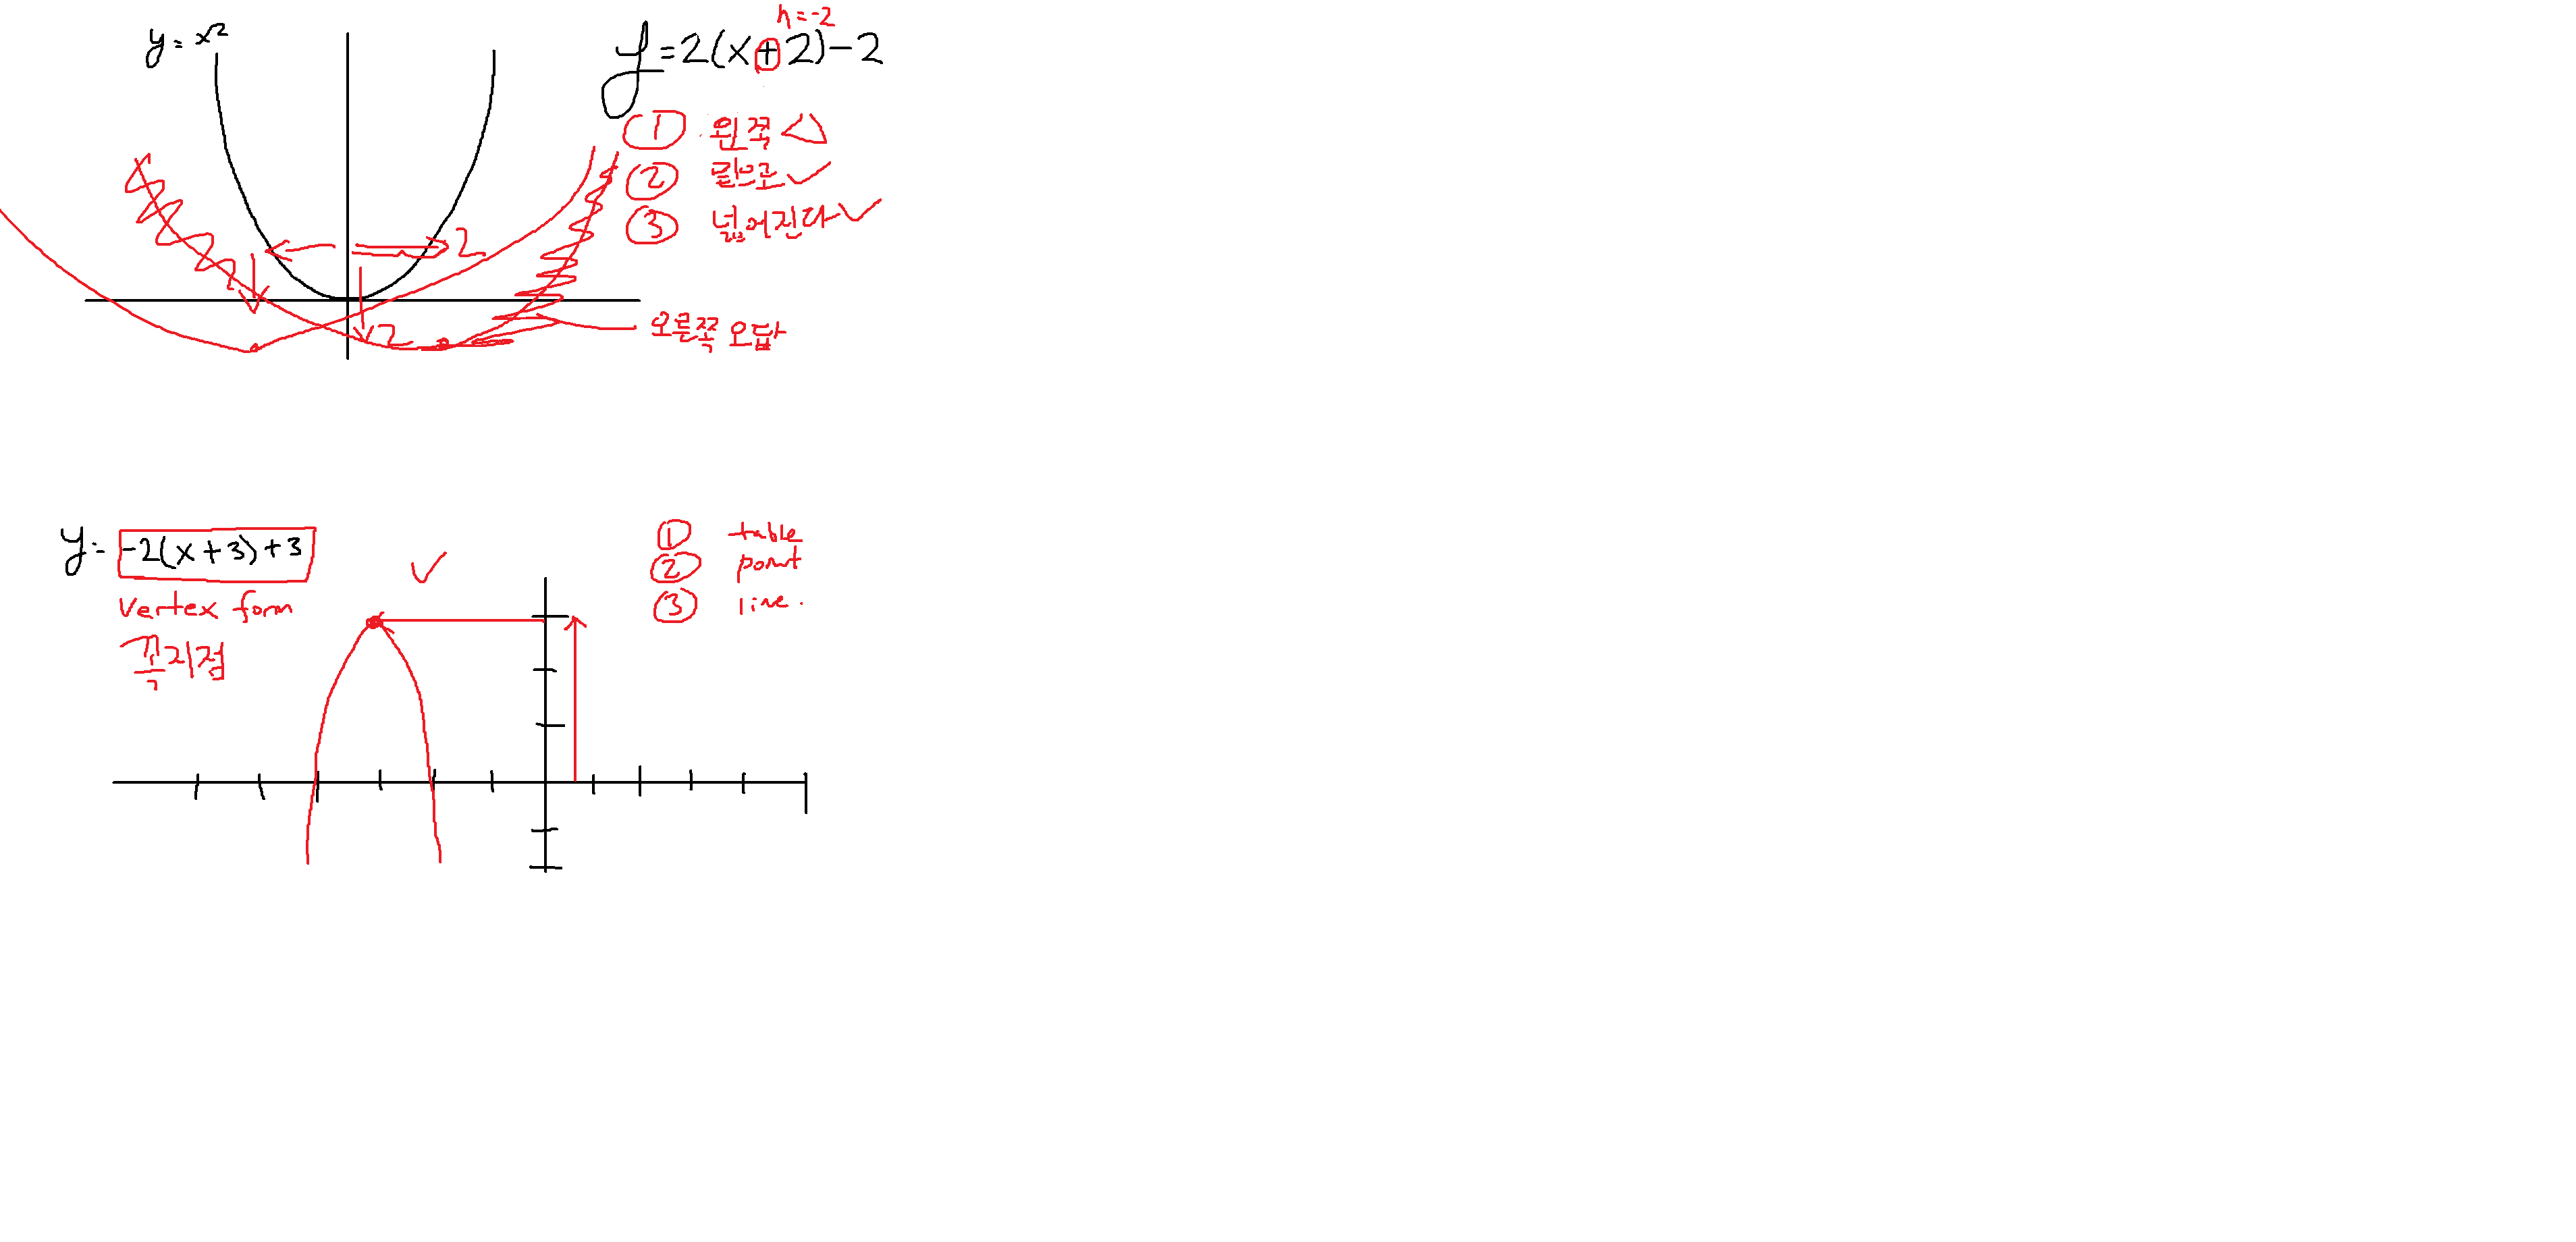 y = x²
h = -2
y = 2(x+2)-2
① 왼쪽
② 밑으로
③ 넓어진다
2
2
오른쪽 오답
y = -2(x+3)+3
vertex form
꼭지점
① table
② point
③ line.